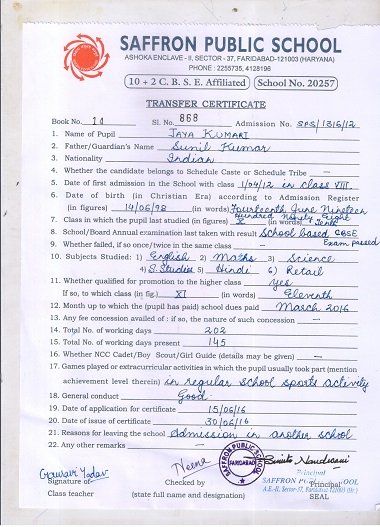 SAFFRON PUBLIC SCHOOL
ASHOKA ENCLAVE - II, SECTOR - 37, FARIDABAD-121003 (HARYANA)
PHONE : 2255735, 4128196
10 + 2 C. B. S. E. Affiliated School No. 20257
TRANSFER CERTIFICATE
Book No. Sl. No. 868 Admission No. SPS/1316/12
1. Name of Pupil JAYA KUMARI
2. Father/Guardian's Name Sunil Kumar
3. Nationality Indian
4. Whether the candidate belongs to Schedule Caste or Schedule Tribe —
5. Date of first admission in the School with class 1/04/12 in class VIII.
6. Date of birth (in Christian Era) according to Admission Register
(in figures) 14/06/98 (in words) Fourteenth June Nineteen
Hundred Ninety Eight
7. Class in which the pupil last studied (in figures) X (in words) Tenth
8. School/Board Annual examination last taken with result School based CBSE
Exam passed
9. Whether failed, if so once/twice in the same class —
10. Subjects Studied: 1) English 2) Maths 3) Science
4) S. Studies 5) Hindi 6) Retail
11. Whether qualified for promotion to the higher class Yes
If so, to which class (in fig.) XI (in words) Eleventh
12. Month up to which the (pupil has paid) school dues paid March 2016
13. Any fee concession availed of : if so, the nature of such concession —
14. Total No. of working days 202
15. Total No. of working days present 145
16. Whether NCC Cadet/Boy Scout/Girl Guide (details may be given) —
17. Games played or extracurricular activities in which the pupil usually took part (mention
achievement level therein) in regular school sports actively
18. General conduct Good.
19. Date of application for certificate 15/06/16
20. Date of issue of certificate 30/06/16
21. Reasons for leaving the school Admission in another school
22. Any other remarks —
Gourav Yadav
Neena
SAFFRON PUBLIC SCHOOL
FARIDABAD
Signature of
Class teacher
Checked by
(state full name and designation)
Principal
SAFFRON PUBLIC SCHOOL
A.E.-II, Sector-37, Faridabad (Har.)
Principal
SEAL